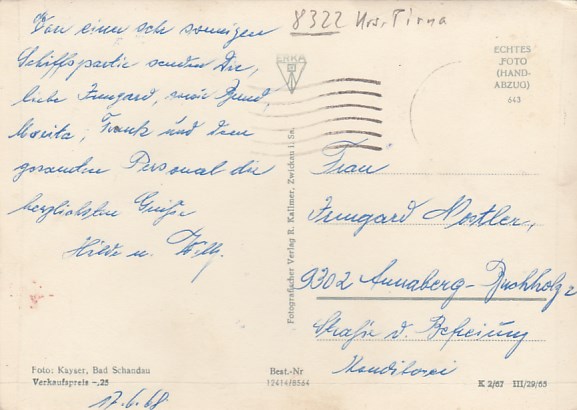 8322 Krs. Pirna
Von einer sehr sonnigen
Schiffspartie senden Dir,
liebe Irmgard, sowie Bernd,
Marita, Frank und dem
gesamten Personal die
herzlichsten Grüße
Hilde u. Willy.
ERKA
ECHTES
„FOTO
(HAND-
ABZUG)
643
Frau
Irmgard Nostler,
9302 Annaberg-Buchholz 2
Straße d. Befreiung
Konditorei
Fotografischer Verlag R. Kallmer, Zwickau i. Sa.
Foto: Kayser, Bad Schandau
Verkaufspreis -,25
17.6.68
Best.-Nr
12414/8564
K 2/67 III/29/65